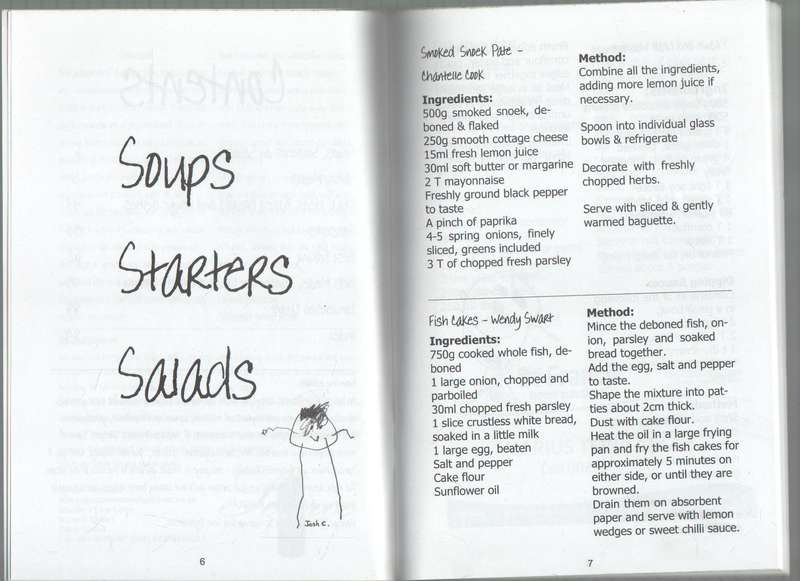 Soups
Starters
Salads
Josh C.
6
Smoked Snoek Pate -
Chantelle Cook
Ingredients:
500g smoked snoek, de-
boned & flaked
250g smooth cottage cheese
15ml fresh lemon juice
30ml soft butter or margarine
2 T mayonnaise
Freshly ground black pepper
to taste
A pinch of paprika
4-5 spring onions, finely
sliced, greens included
3 T of chopped fresh parsley
Method:
Combine all the ingredients,
adding more lemon juice if
necessary.
Spoon into individual glass
bowls & refrigerate
Decorate with freshly
chopped herbs.
Serve with sliced & gently
warmed baguette.
Fish Cakes - Wendy Swart
Ingredients:
750g cooked whole fish, de-
boned
1 large onion, chopped and
parboiled
30ml chopped fresh parsley
1 slice crustless white bread,
soaked in a little milk
1 large egg, beaten
Salt and pepper
Cake flour
Sunflower oil
Method:
Mince the deboned fish, on-
ion, parsley and soaked
bread together.
Add the egg, salt and pepper
to taste.
Shape the mixture into pat-
ties about 2cm thick.
Dust with cake flour.
Heat the oil in a large frying
pan and fry the fish cakes for
approximately 5 minutes on
either side, or until they are
browned.
Drain them on absorbent
paper and serve with lemon
wedges or sweet chilli sauce.
7